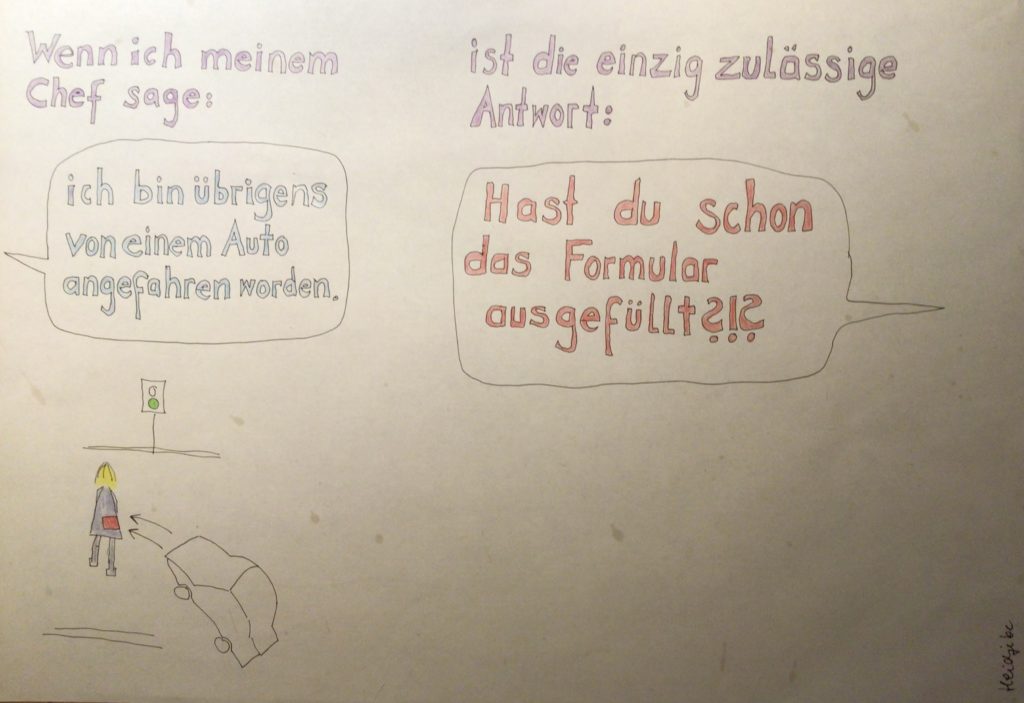 Wenn ich meinem
Chef sage:
ich bin übrigens
von einem Auto
angefahren worden.
ist die einzig zulässige
Antwort:
Hast du schon
das Formular
ausgefüllt?!?